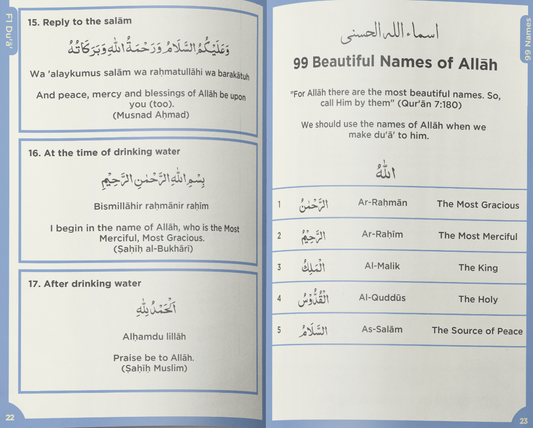 Fī Du'ā'
15. Reply to the salām
وَعَلَيْكُمُ السَّلَامُ وَرَحْمَةُ اللهِ وَبَرَكَاتُهُ
Wa 'alaykumus salām wa raḥmatullāhi wa barakātuh
And peace, mercy and blessings of Allāh be upon
you (too).
(Musnad Aḥmad)
16. At the time of drinking water
بِسْمِ اللهِ الرَّحْمٰنِ الرَّحِيْمِ
Bismillāhir raḥmānir raḥīm
I begin in the name of Allāh, who is the Most
Merciful, Most Gracious.
(Ṣaḥīḥ al-Bukhārī)
17. After drinking water
اَلْحَمْدُ لِلّٰهِ
Alḥamdu lillāh
Praise be to Allāh.
(Ṣaḥīḥ Muslim)
22
99 Names
اسماء الله الحسنى
99 Beautiful Names of Allāh
"For Allāh there are the most beautiful names. So,
call Him by them" (Qur'ān 7:180)
We should use the names of Allāh when we
make du'ā' to him.
اَللهُ
1 اَلرَّحْمٰنُ Ar-Raḥmān The Most Gracious
2 اَلرَّحِيْمُ Ar-Raḥīm The Most Merciful
3 اَلْمَلِكُ Al-Malik The King
4 اَلْقُدُّوْسُ Al-Quddūs The Holy
5 اَلسَّلَامُ As-Salām The Source of Peace
23